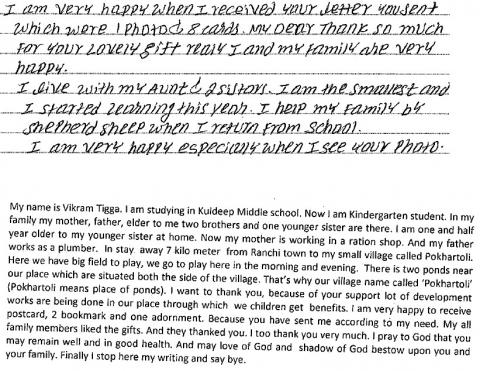 I am very happy when I received your letter you sent
which were 1 Photo & 8 cards. My Dear Thank so much
For your Lovely gift realy I and my Family are very
happy.
I live with my Aunt & 2 sistors. I am the smallest and
I started learning this year. I help my Family by
shepherd sheep when I return from School.
I am very happy especially when I see your Photo.
My name is Vikram Tigga. I am studying in Kuideep Middle school. Now I am Kindergarten student. In my
family my mother, father, elder to me two brothers and one younger sister are there. I am one and half
year older to my younger sister at home. Now my mother is working in a ration shop. And my father
works as a plumber. In stay away 7 kilo meter from Ranchi town to my small village called Pokhartoli.
Here we have big field to play, we go to play here in the morning and evening. There is two ponds near
our place which are situated both the side of the village. That's why our village name called 'Pokhartoli'
(Pokhartoli means place of ponds). I want to thank you, because of your support lot of development
works are being done in our place through which we children get benefits. I am very happy to receive
postcard, 2 bookmark and one adornment. Because you have sent me according to my need. My all
family members liked the gifts. And they thanked you. I too thank you very much. I pray to God that you
may remain well and in good health. And may love of God and shadow of God bestow upon you and
your family. Finally I stop here my writing and say bye.